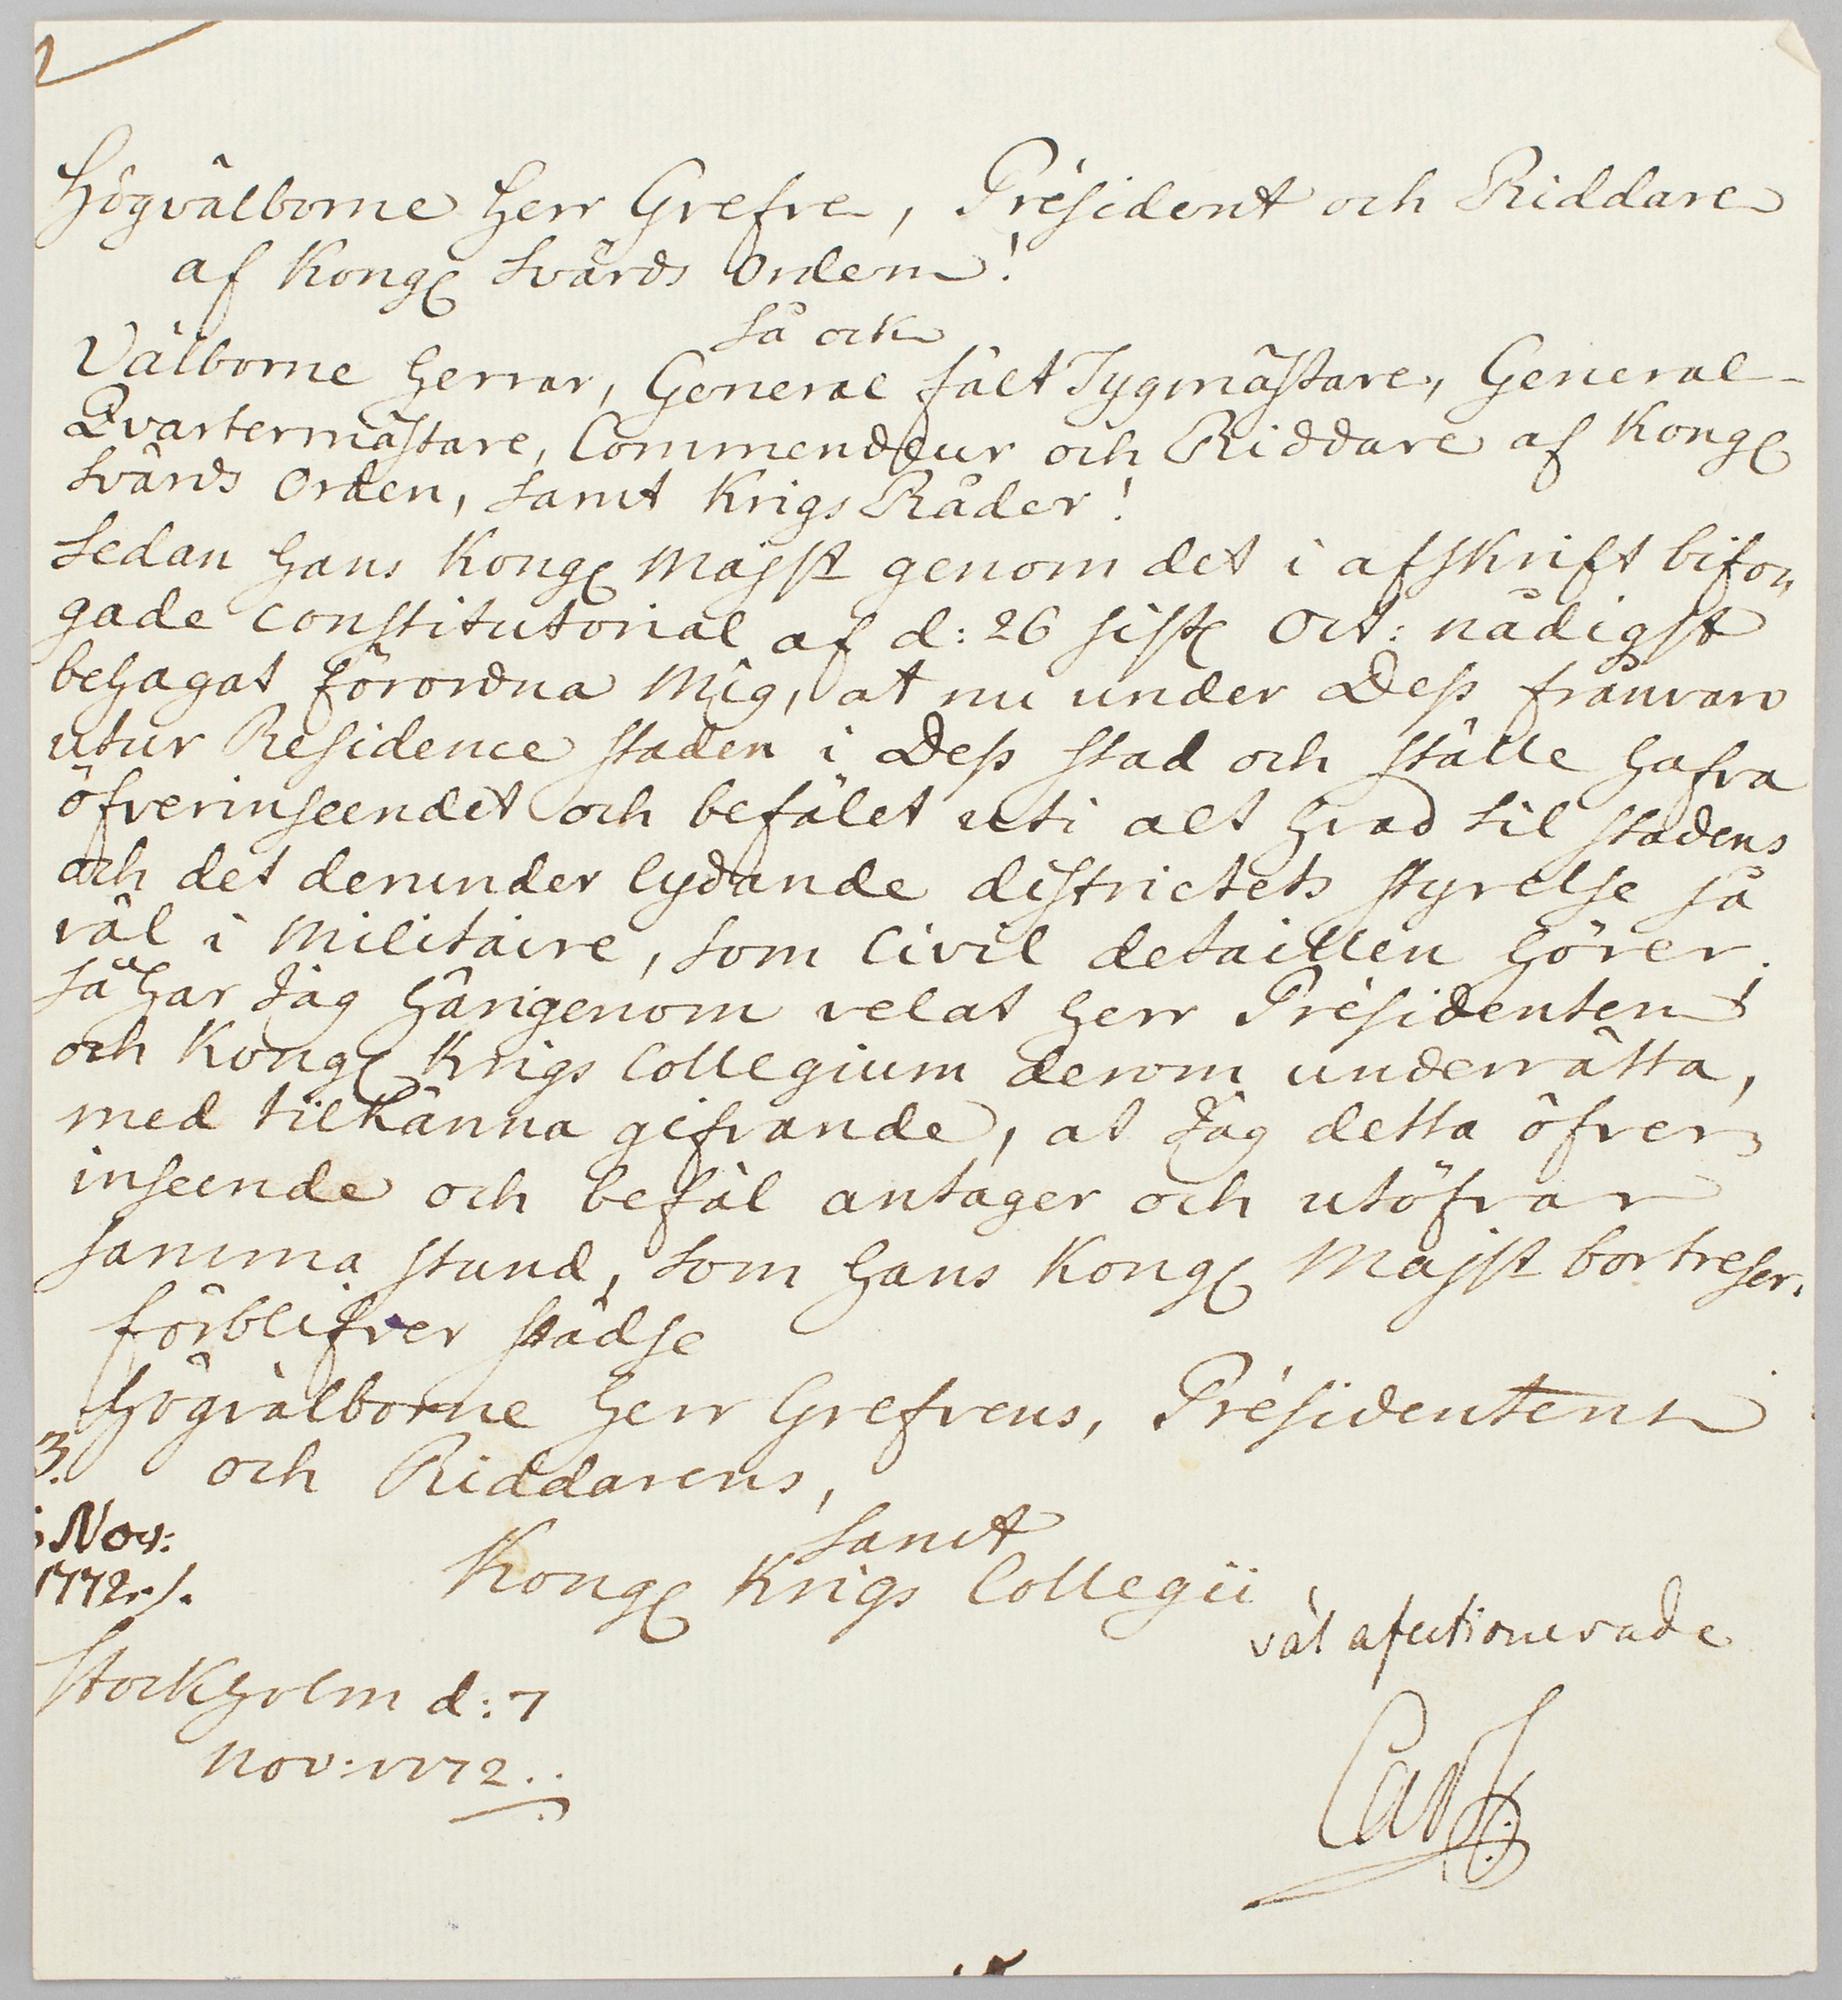 Högvälborne Herr Grefve, Président och Riddare
af Kongl Svärds Orden!
så ock
Välborne Herrar, General fält Tygmästare, General-
Qvartermästare, Commendeur och Riddare af Kongl
Svärds Orden, samt Krigs Råder!
Sedan Hans Kongl Majst genom det i afskrift bifo-
gade constitutorial af d: 26 sistl Oct: nådigst
behagat förordna Mig, at nu under Dess frånvaro
utur Residence staden i Dess stad och ställe hafva
öfverinseendet och befälet uti alt hvad til stadens
och det derunder lydande districtets styrelse så
väl i Militaire, som Civil detaillen hörer;
så har Jag härigenom velat Herr Présidenten
och Kongl Krigs Collegium derom underrätta,
med tilkänna gifvande, at Jag detta öfver-
inseende och befäl antager och utöfvar
samma stund, som Hans Kongl Majst bortreser.
förblifver städse
Högvälborne Herr Grefvens, Présidentens
och Riddarens,
samt
Kongl Krigs Collegii
väl afectionerade
Carl
3.
Nov:
1772./.
Stockholm d: 7
Nov: 1772..